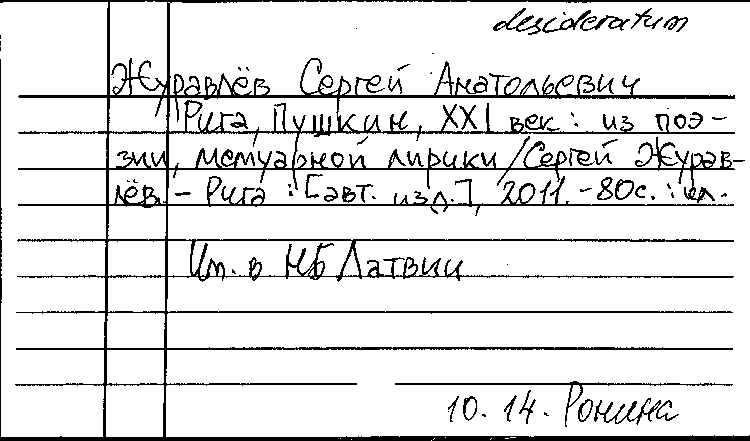 desideratum
Журавлёв Сергей Анатольевич
Рига, Пушкин, XXI век : из поэ-
зии, мемуарной лирики / Сергей Журав-
лёв. - Рига : [авт. изд.], 2011. - 80 с. : ил.
в НБ Латвии
10. 14. Ронина